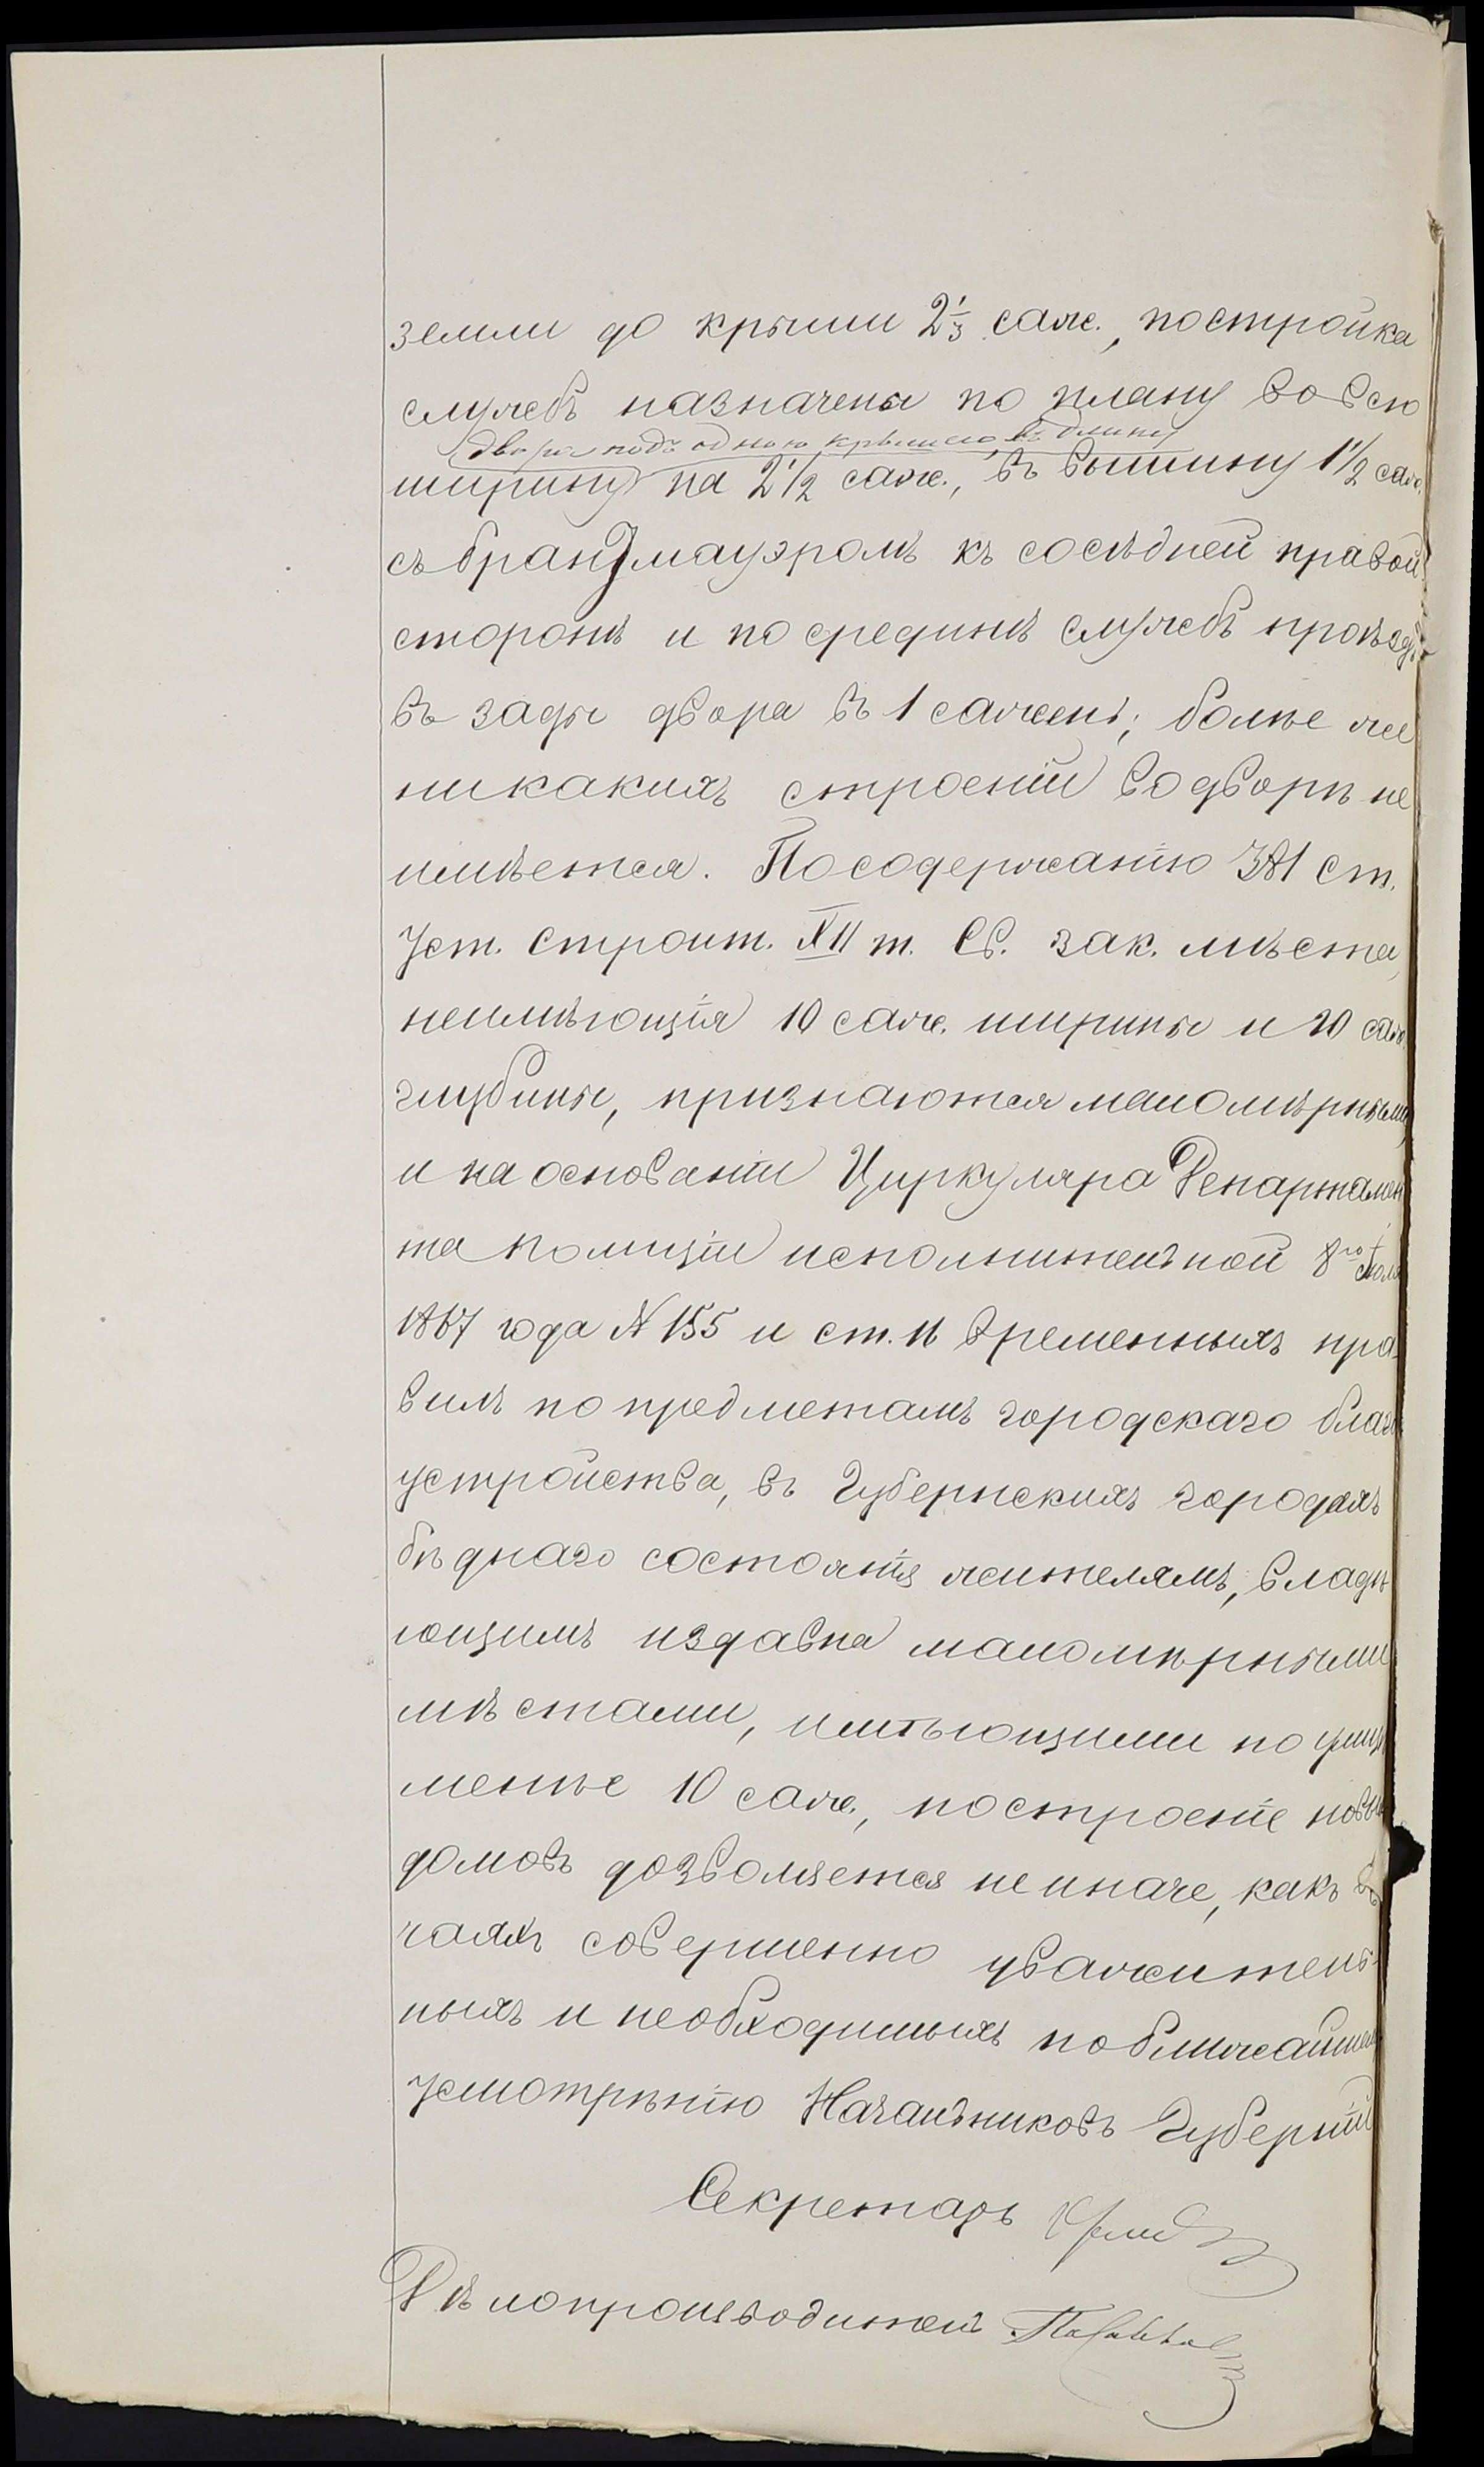 земли до крыши 2⅓ саж., постройка
службъ назначены по плану во всю
двора подъ одною крышею, въ длину
ширину на 2½ саж., въ вышину 1½ саж.
съ брандмауэромъ къ сосѣдней правой
сторонѣ и по срединѣ службъ проѣздъ
въ зады двора въ 1 сажень; болѣе же
никакихъ строеній во дворѣ не
имѣется. По содержанію 381 ст.
Уст. Строит. XII т. Св. зак. мѣста,
неимѣющія 10 саж. ширины и 20 саж.
глубины, признаются маломѣрными,
и на основаніи Циркуляра Департамен
та Полиціи исполнительной 8го
1867 года N 155 и ст. 11 временныхъ пра-
вилъ по предметамъ городскаго благо
устройства, въ Губернскихъ городахъ
бѣднаго состоянія жителямъ, владѣ
ющимъ издавна маломѣрными
мѣстами, имѣющими по улицѣ
менѣе 10 саж., построеніе новыхъ
домовъ дозволяется не иначе, какъ въ
чаяхъ совершенно уважитель-
ныхъ и необходимыхъ по ближайшему
усмотрѣнію Начальниковъ Губерній
Секретарь
Дѣлопроизводитель